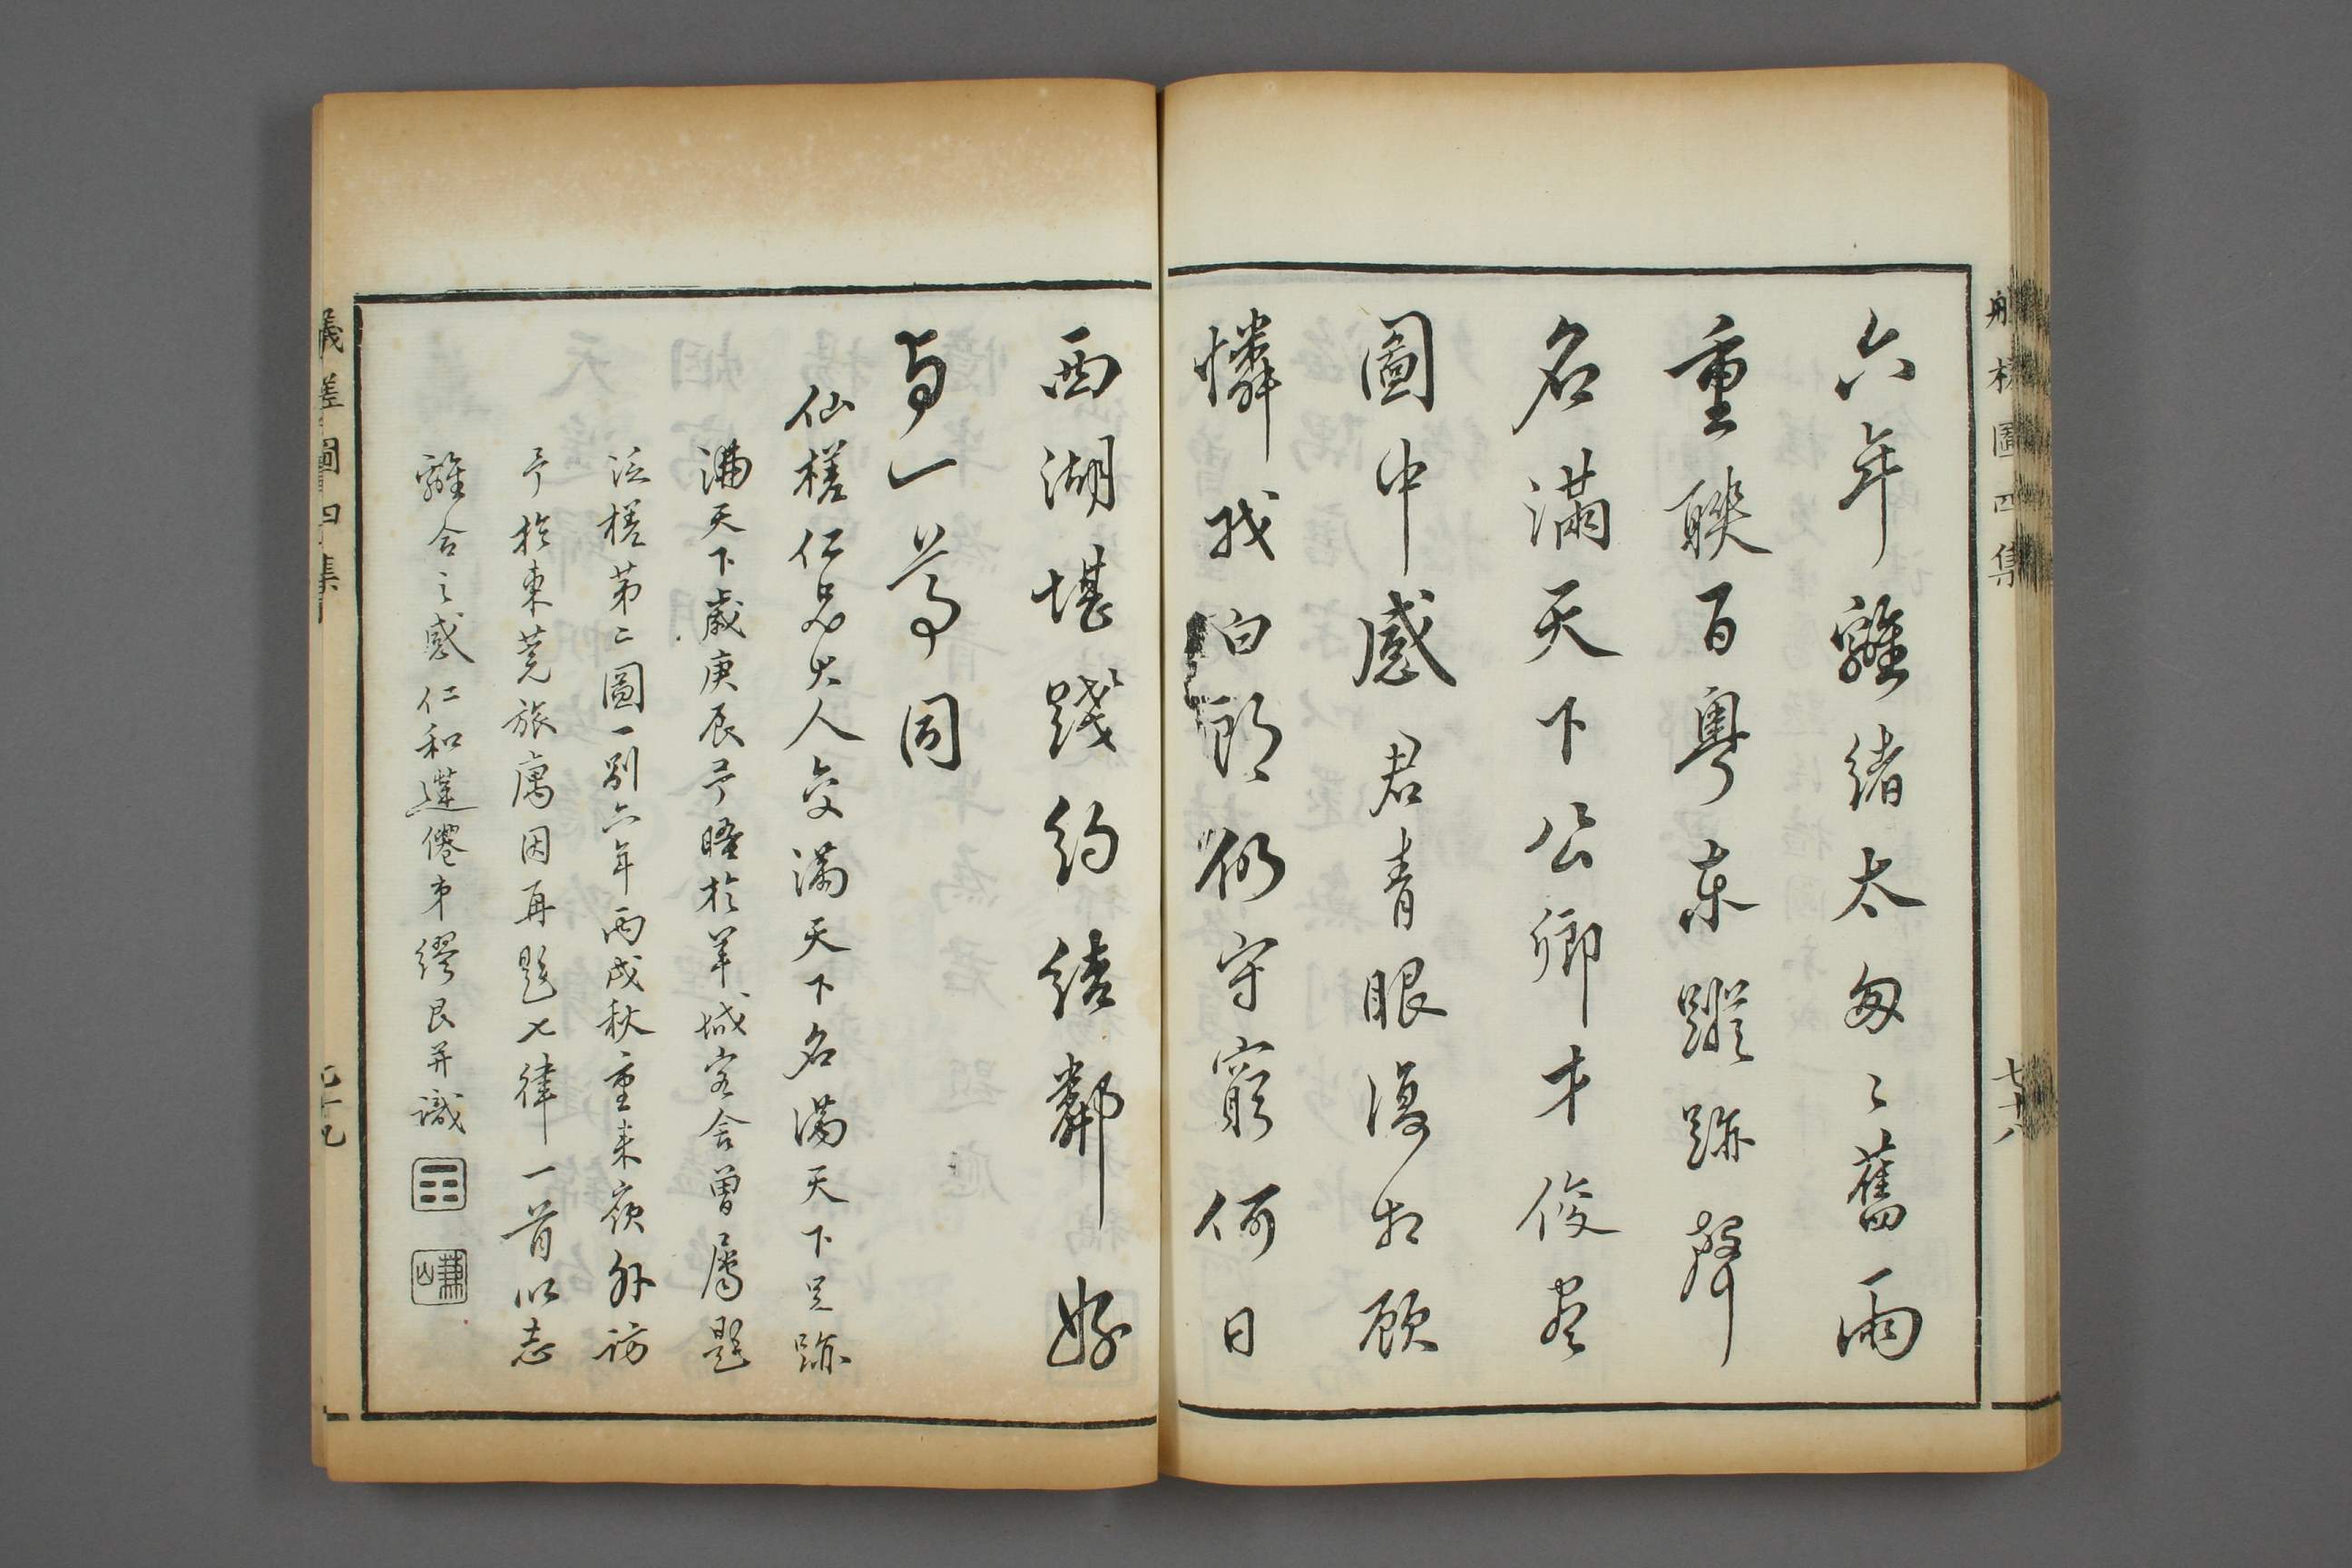 六年離緒太匆〻舊雨
重聯百粵東蹤跡聲
名滿天下公卿才俊盡
圖中感君青眼復相顧
憐我白頭仍守窮何日
西湖堪踐約結鄰好
與一尊同
仙槎仁兄大人交滿天下名滿天下足跡
滿天下歲庚辰予晤於羊城客舍曾屬題
泛槎第二圖一別六年丙戌秋重来嶺外訪
予於東莞旅寓因再題七律一首以志
離合之感仁和蓮僊弟繆艮并識
謙山
槎圖四集
七十八
槎圖四集